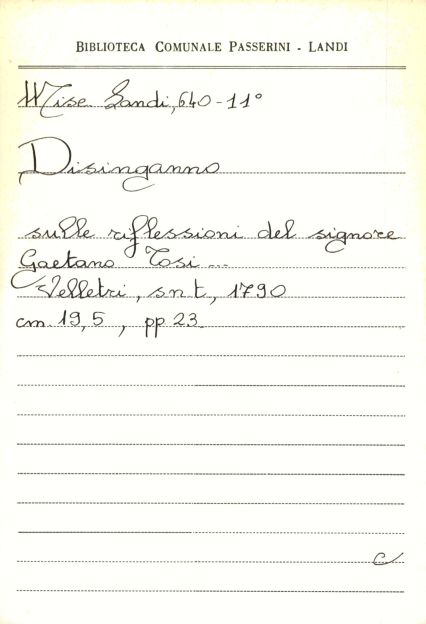 BIBLIOTECA COMUNALE PASSERINI - LANDI
Misc. Landi, 640-11°
Disinganno
sulle riflessioni del signore
Gaetano Tosi ...
Velletri, s.n.t, 1790
cm. 19,5 , pp 23.
C